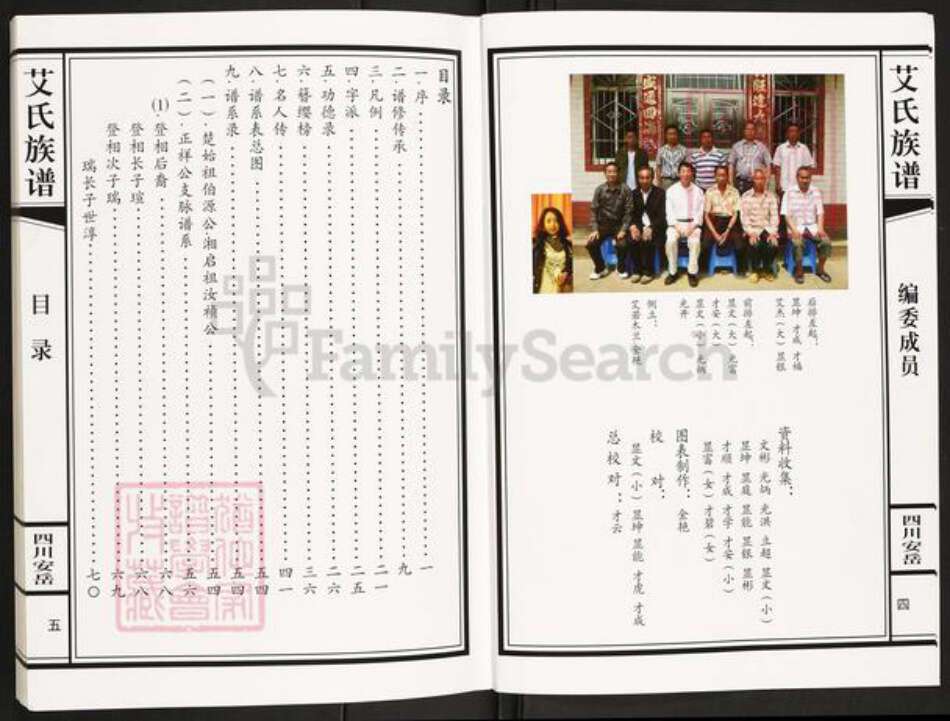 艾氏族谱
编委成员
四川安岳
四
后排左起：
显坤 才成 才福
艾杰（大） 显银
前排左起：
显文（大） 光富
才安（大）
显文（小） 光炳
光开
侧立：
艾若木兰 金艳
资料收集：
文彬 光炳 光洪 立超 显文（小）
显坤 显庭 显能 显银 显彬
才顺 才成 才学 才安（小）
显富（女） 才碧（女）
图表制作：金艳
校对：
显文（小） 显坤 显能 才虎 才成
总校对：才云
FamilySearch
目录
一·序 一
二·谱修传承 九
三·凡例 二一
四·字派 二五
五·功德录 二六
六·簪缨榜 三六
七·名人传 四一
八·谱系表总图 五四
九·谱系录 五四
（一）·楚始祖伯源公湘启祖汝祯公 五四
（二）·正祥公支脉谱系 五六
⑴·登相后裔 六八
登相长子瑄 六八
登相次子瑞 六九
瑞长子世淳 七〇
艾氏族谱
目录
四川安岳
五